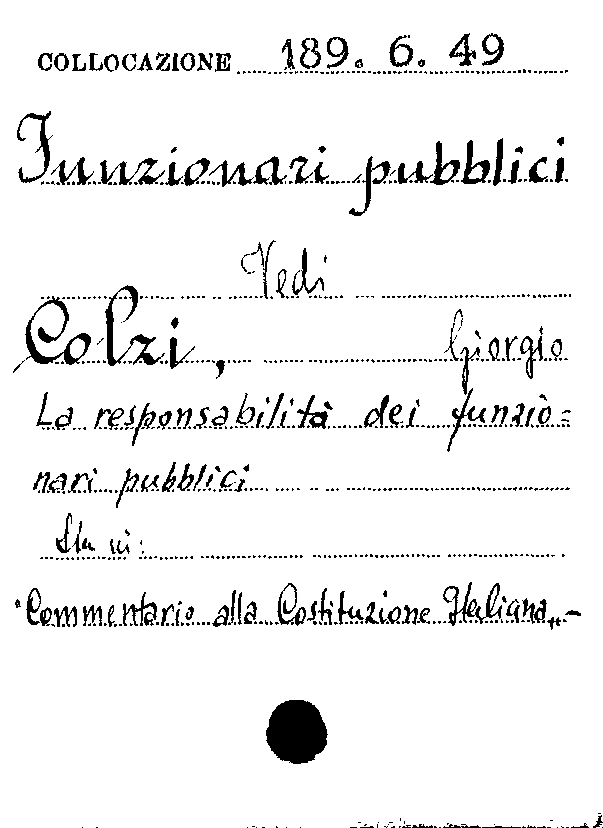 COLLOCAZIONE 189. 6. 49
Funzionari pubblici
Vedi
Colzi, Giorgio
La responsabilità dei funzio=
nari pubblici
Sta in:
"Commentario alla Costituzione Italiana„-